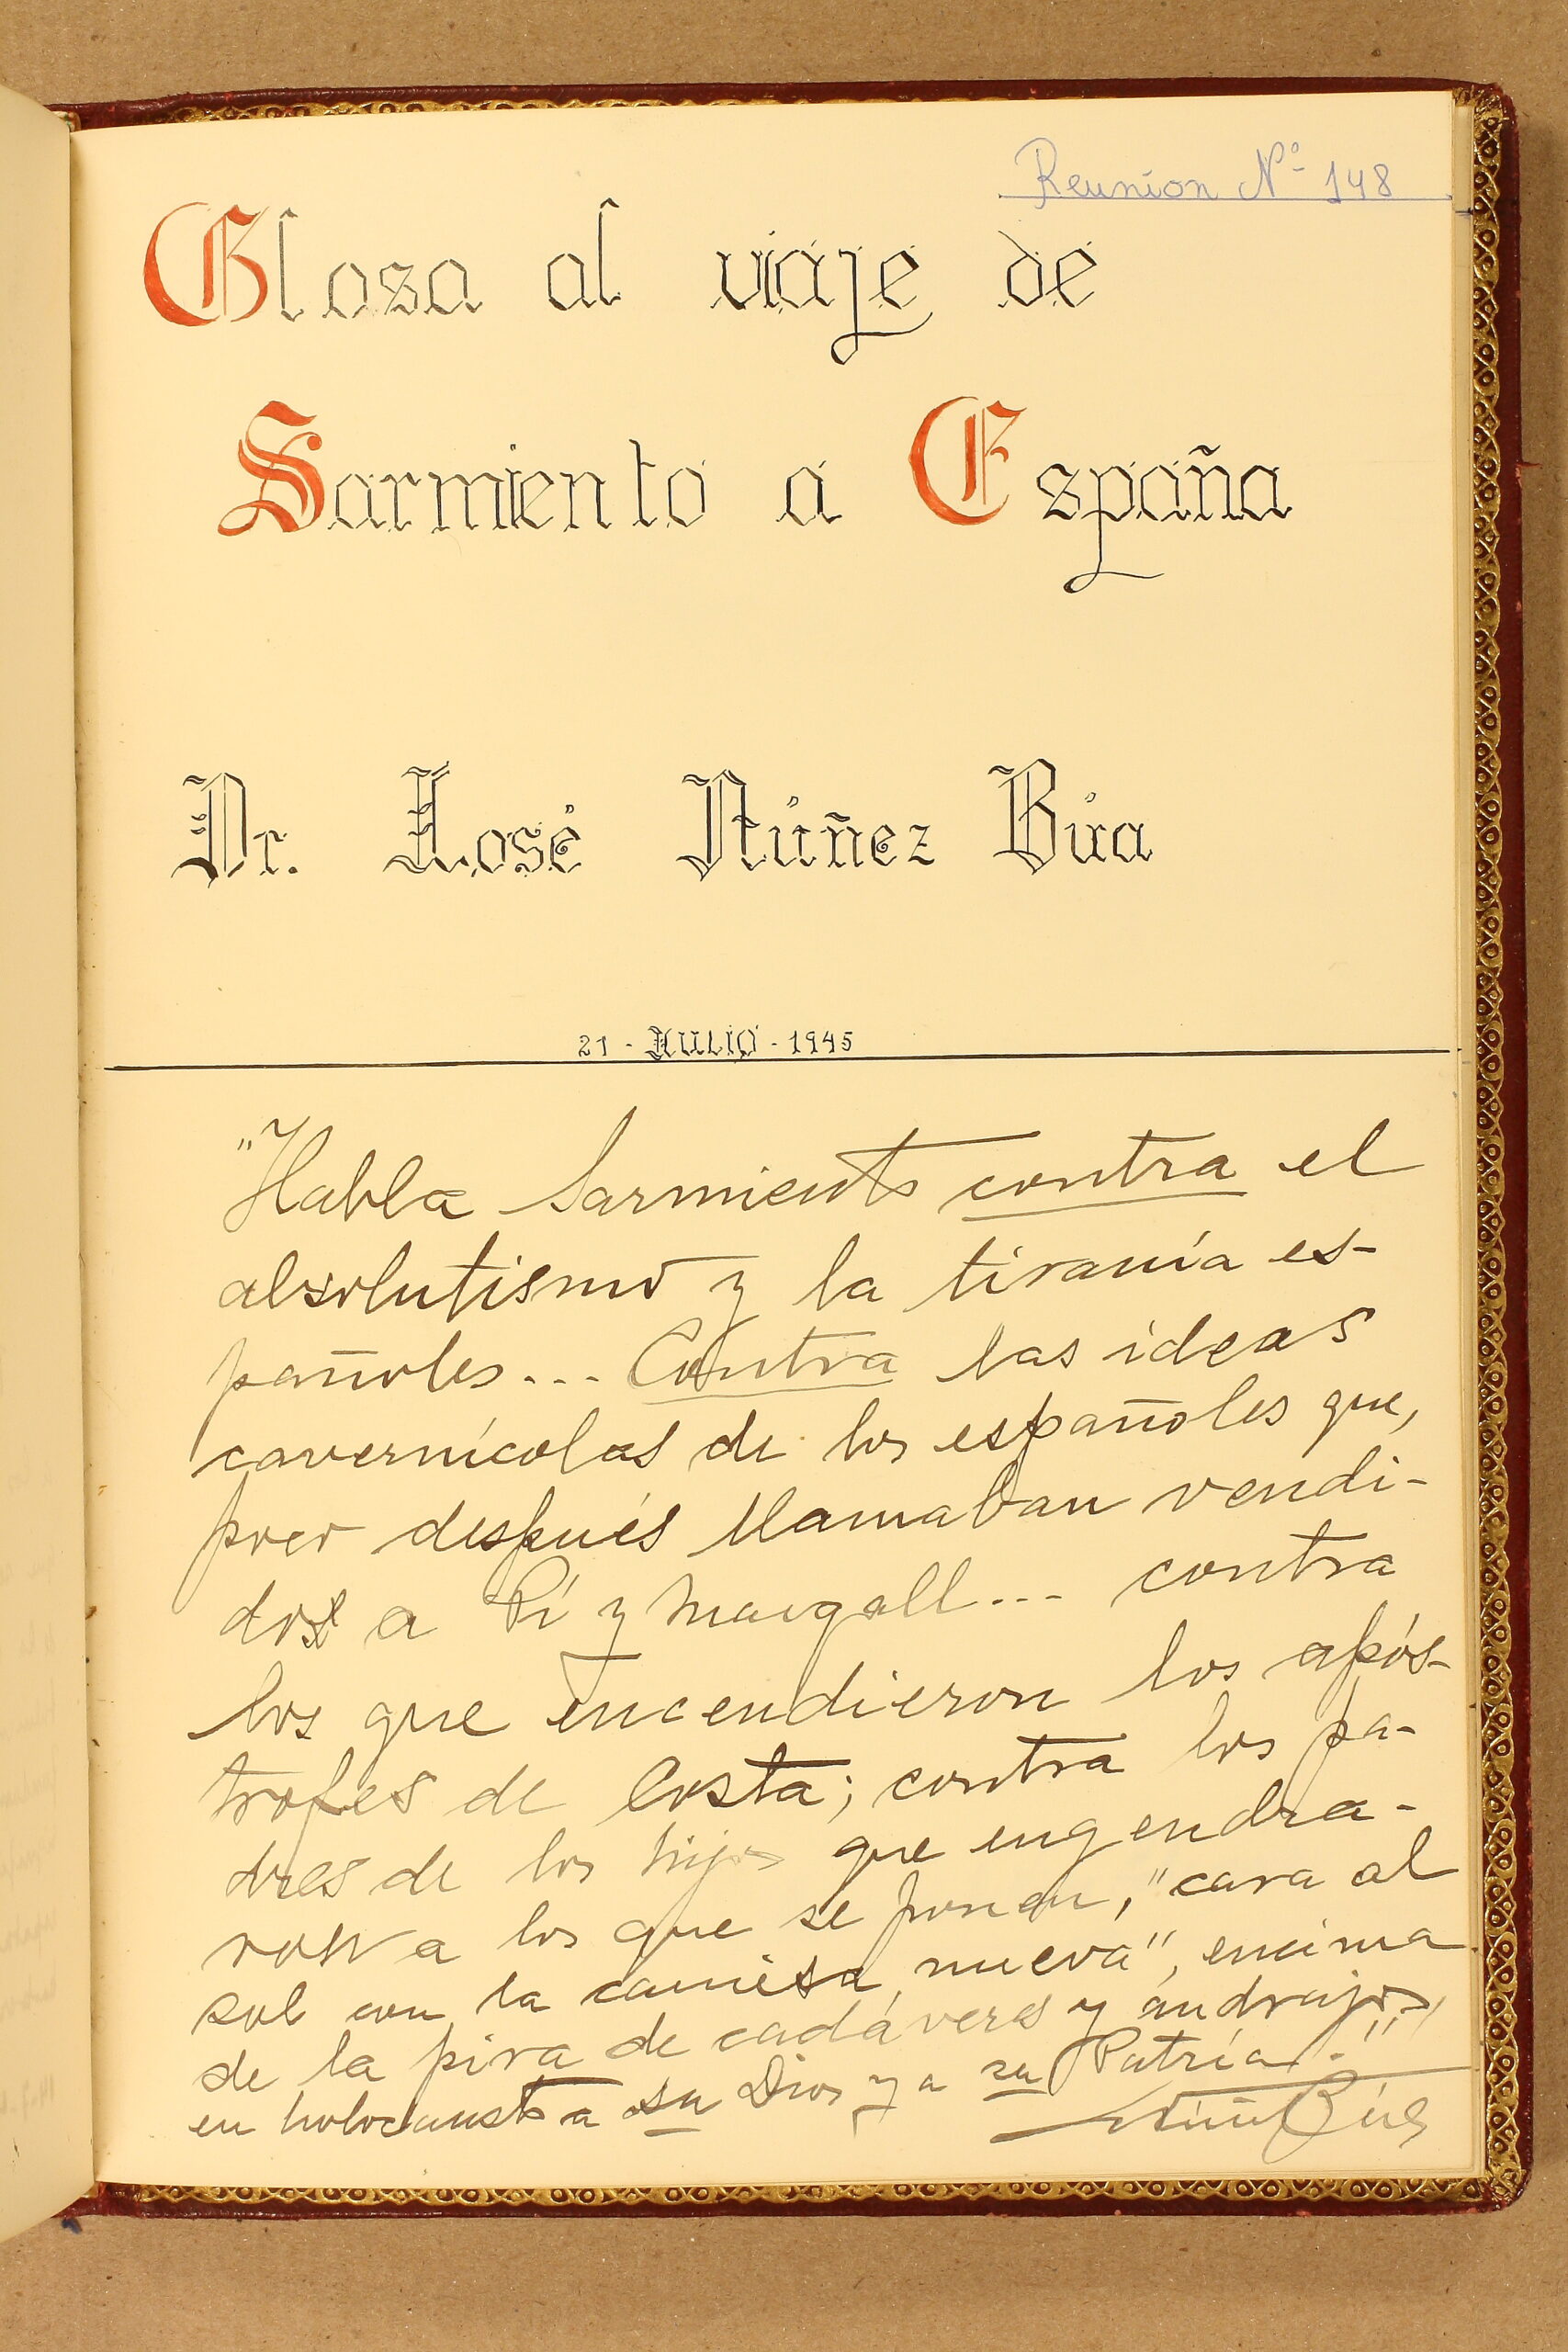 Reunión Nº 148
Glosa al viaje de
Sarmiento a España
Dr. José Núñez Búa
21 - JULIO - 1945
"Habla Sarmiento contra el
absolutismo y la tiranía es-
pañoles... Contra las ideas
cavernícolas de los españoles que,
poco después llamaban vendi-
dos a Pí y Margall... contra
los que encendieron los após-
trofes de Costa; contra los pa-
dres de los hijos que engendra-
ron a los que se ponen, "cara al
sol con la camisa nueva", encima
de la pira de cadáveres y andrajos,
en holocausto a su Dios y a su Patria!"
Núñ Búa